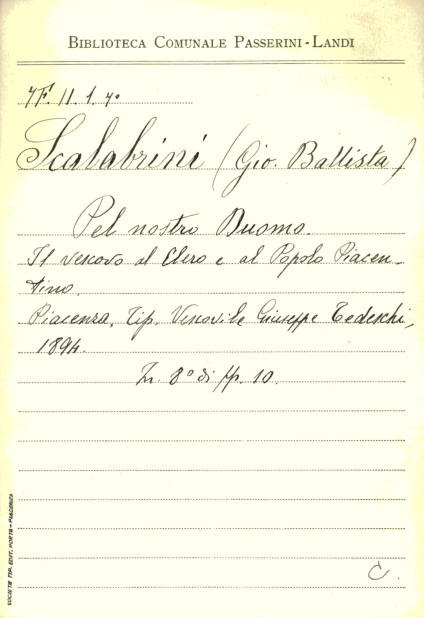 BIBLIOTECA COMUNALE PASSERINI-LANDI
7F. 11. 1. 40
Scalabrini (Gio. Battista)
Pel nostro Duomo.
Il vescovo al Clero e al Popolo Piacen-
tino.
Piacenza, Tip. Vescovile Giuseppe Tedeschi,
1894.
In 8° di pp. 10.
C.
SOCIETÀ TIP. EDIT. PORTA - PIACENZA